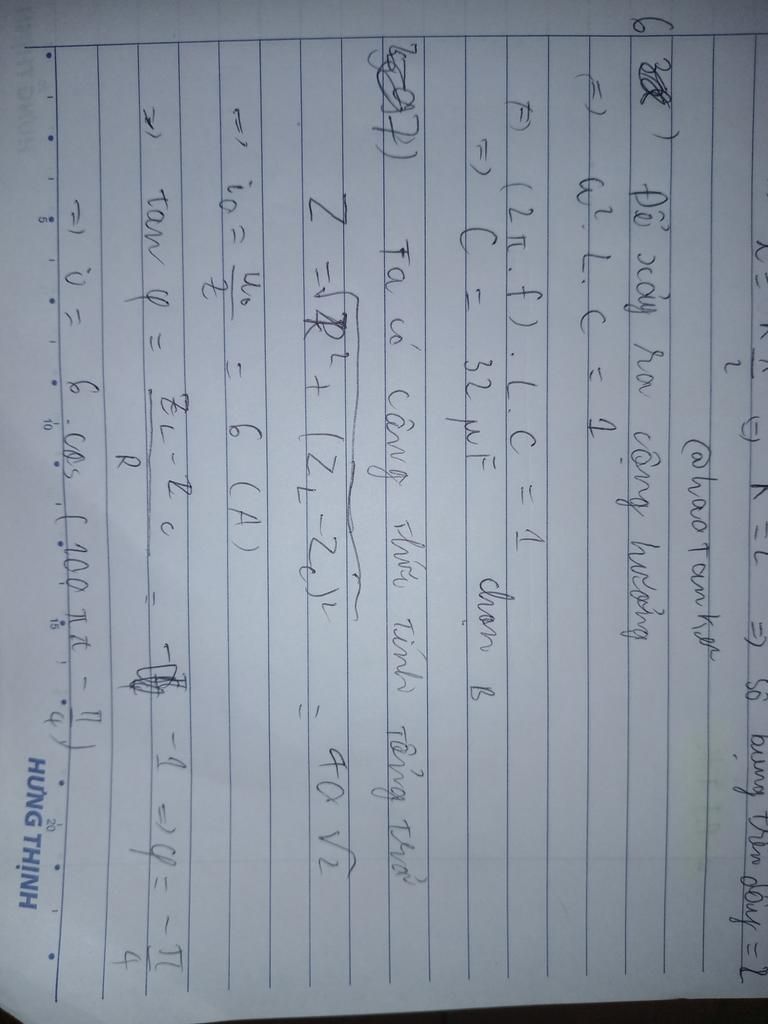 => k = 2 => số bụng trên dây = 2
@haotamkor
6 ) Để xảy ra cộng hưởng
=) ω². L. C = 1
=) (2π. f). L. C = 1
=) C = 32 μF chọn B
7) Ta có công thức tính tổng trở
Z = √R² + (ZL - Zc)² = 40√2
=> i₀ = u₀/Z = 6 (A)
=> tan φ = ZL - Zc/R = -1 => φ = -π/4
=> i = 6. cos (100πt - π/4)
5 10 15 20
HƯNG THỊNH